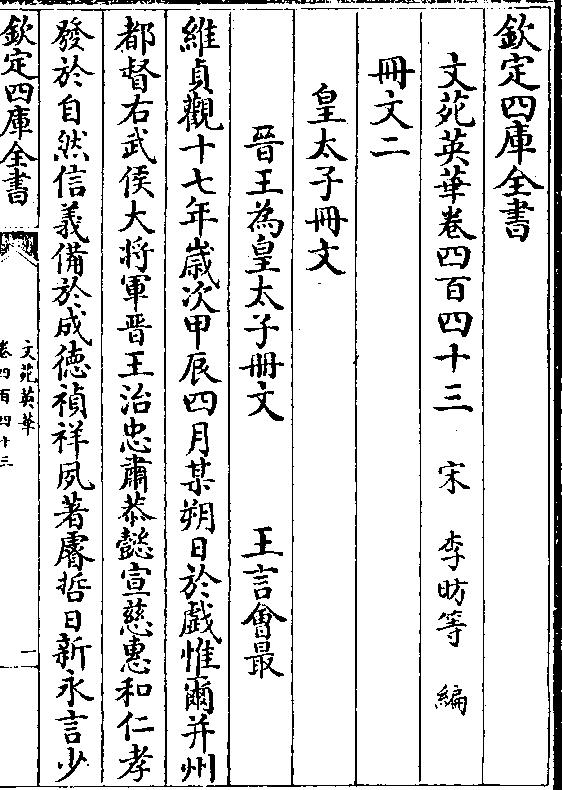 欽定四庫全書
文苑英華卷四百四十三 宋 李昉等 編
冊文二
皇太子冊文
晉王為皇太子冊文 王言會最
維貞觀十七年歲次甲辰四月某朔日於戲惟爾并州
都督右武侯大將軍晉王治忠肅恭懿宣慈惠和仁孝
發於自然信義備於成德禎祥夙著睿哲日新永言少
欽定四庫全書
文苑英華
卷四百四十三
一